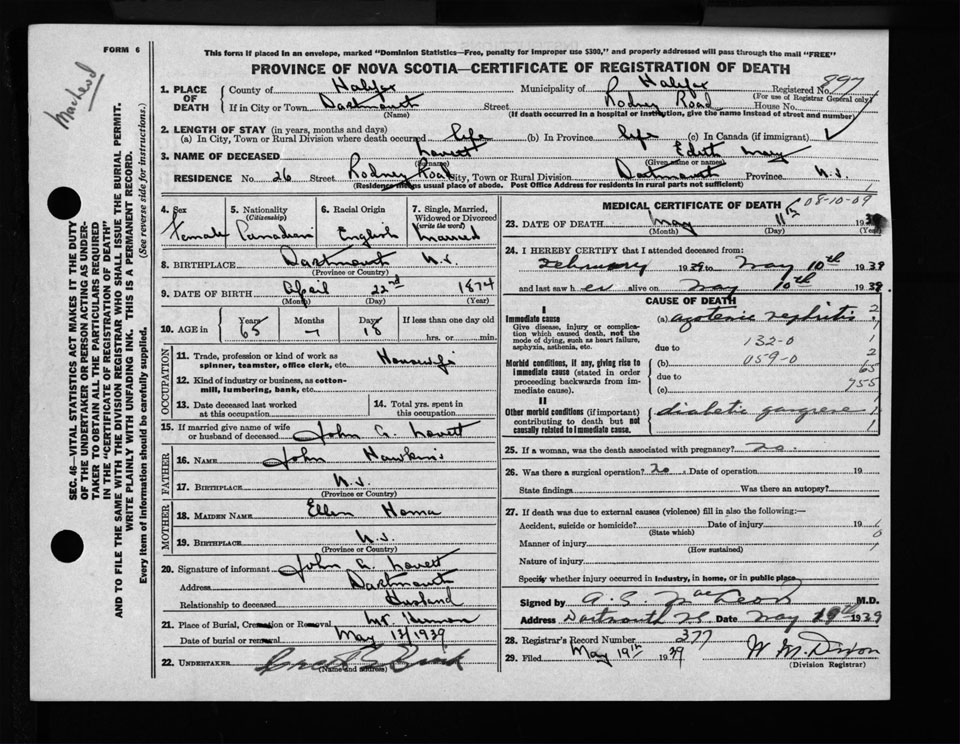 FORM 6
This form if placed in an envelope, marked "Dominion Statistics—Free, penalty for improper use $300," and properly addressed will pass through the mail "FREE"
PROVINCE OF NOVA SCOTIA—CERTIFICATE OF REGISTRATION OF DEATH
MacLeod
SEC. 46—VITAL STATISTICS ACT MAKES IT THE DUTY
OF THE UNDERTAKER OR PERSON ACTING AS UNDER-
TAKER TO OBTAIN ALL THE PARTICULARS REQUIRED
IN THE "CERTIFICATE OF REGISTRATION OF DEATH"
AND TO FILE THE SAME WITH THE DIVISION REGISTRAR WHO SHALL ISSUE THE BURIAL PERMIT.
WRITE PLAINLY WITH UNFADING INK. THIS IS A PERMANENT RECORD.
Every item of information should be carefully supplied. (See reverse side for instructions.)
1. PLACE OF DEATH County of Halifax Municipality of Halifax Registered No. 897
(For use of Registrar General only)
If in City or Town Dartmouth Street Rodney Road House No.
(Name) (If death occurred in a hospital or institution, give the name instead of street and number)
2. LENGTH OF STAY (in years, months and days)
(a) In City, Town or Rural Division where death occurred life (b) In Province life (c) In Canada (if immigrant)
3. NAME OF DECEASED Lovett Edith May
(Surname) (Given name or names)
RESIDENCE No. 26 Street Rodney Road City, Town or Rural Division Dartmouth Province N.S.
(Residence means usual place of abode. Post Office Address for residents in rural parts not sufficient)
4. Sex Female
5. Nationality (Citizenship) Canadian
6. Racial Origin English
7. Single, Married, Widowed or Divorced (write the word) Married
8. BIRTHPLACE Dartmouth N.S.
(Province or Country)
9. DATE OF BIRTH April 22nd 1874
(Month) (Day) (Year)
10. AGE in Years 65 Months — Days 18 If less than one day old
hrs. or min.
OCCUPATION
11. Trade, profession or kind of work as spinner, teamster, office clerk, etc. Housewife
12. Kind of industry or business, as cotton-mill, lumbering, bank, etc.
13. Date deceased last worked at this occupation
14. Total yrs. spent in this occupation
15. If married give name of wife or husband of deceased John A. Lovett
FATHER
16. NAME John Hawkins
17. BIRTHPLACE N.S.
(Province or Country)
MOTHER
18. MAIDEN NAME Ellen
19. BIRTHPLACE N.S.
(Province or Country)
20. Signature of informant John A. Lovett
Address Dartmouth
Relationship to deceased Husband
21. Place of Burial, Cremation or Removal Mt. Hermon
Date of burial or removal May 13/1939
22. UNDERTAKER
(Name and address)
MEDICAL CERTIFICATE OF DEATH
08-10-09
23. DATE OF DEATH May 11th 1939
(Month) (Day) (Year)
24. I HEREBY CERTIFY that I attended deceased from:
February 1939 to May 10th 1939
and last saw her alive on May 10th 1939
CAUSE OF DEATH
I
Immediate cause (a) azotemic nephritis
Give disease, injury or complication which caused death, not the mode of dying, such as heart failure, asphyxia, asthenia, etc.
132-0
due to
Morbid conditions, if any, giving rise to immediate cause (stated in order proceeding backwards from immediate cause). (b) 059-0
due to
(c) 755
II
Other morbid conditions (if important) contributing to death but not causally related to immediate cause. diabetic gangrene
25. If a woman, was the death associated with pregnancy? no
26. Was there a surgical operation? no Date of operation 19
State findings Was there an autopsy?
27. If death was due to external causes (violence) fill in also the following:—
Accident, suicide or homicide? Date of injury 19
(State which)
Manner of injury
(How sustained)
Nature of injury
Specify whether injury occurred in industry, in home, or in public place
Signed by A. S. MacLeod M.D.
Address Dartmouth N.S. Date May 19th 1939
28. Registrar's Record Number 377
29. Filed May 19th 1939 W M. Dixon
(Division Registrar)